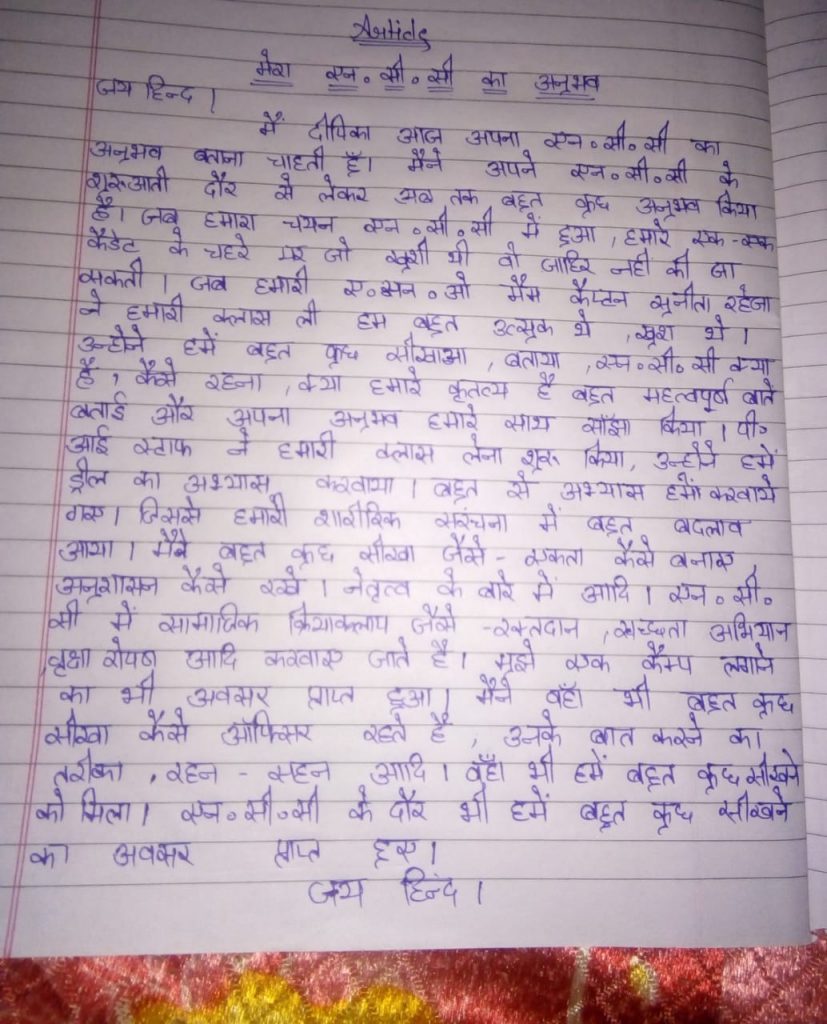 Article
मेरा एन॰ सी॰ सी का अनुभव
जय हिन्द।
मैं दीपिका आज अपना एन॰सी॰सी का
अनुभव बताना चाहती हूँ। मैंने अपने एन॰सी॰सी के
शुरुआती दौर से लेकर अब तक बहुत कुछ अनुभव किया
है। जब हमारा चयन एन॰सी॰सी में हुआ, हमारे एक-एक
कैडेट के चहरे पर जो खुशी थी वो जाहिर नही की जा
सकती। जब हमारी ए॰एन॰ओ मैम कैप्टन सुनीता रहेजा
ने हमारी क्लास ली हम बहुत उत्सुक थे, खुश थे।
उन्होने हमें बहुत कुछ सीखाआ, बताया, एन॰सी॰सी क्या
है, कैसे रहना, क्या हमारे कृतव्य है बहुत महत्वपूर्ण बाते
बताई और अपना अनुभव हमारे साथ साँझा किया। पी॰
आई स्टाफ ने हमारी क्लास लेना शुरू किया, उन्होने हमें
ड्रील का अभ्यास करवाया। बहुत से अभ्यास हमों करवाये
गए। जिससे हमारी शारीरिक सरंचना में बहुत बदलाव
आया। मैंने बहुत कुछ सीखा जैसे - एकता कैसे बनाए,
अनुशासन कैसे रखे। नेतृत्व के बारे में आदि। एन॰सी॰
सी में सामाजिक क्रियाकलाप जैसे -रक्तदान, स्वच्छता अभियान
,वृक्षा रोपण आदि करवाए जाते है। मुझे एक कैम्प लगाने
का भी अवसर प्राप्त हुआ। मैंने वहाँ भी बहुत कुछ
सीखा कैसे ऑफिसर रहते है, उनके बात करने का
तरीका, रहन - सहन आदि। वहाँ भी हमें बहुत कुछ सीखने
को मिला। एन॰सी॰सी के दौर भी हमें बहुत कुछ सीखने
का अवसर प्राप्त हुए।
जय हिन्द।